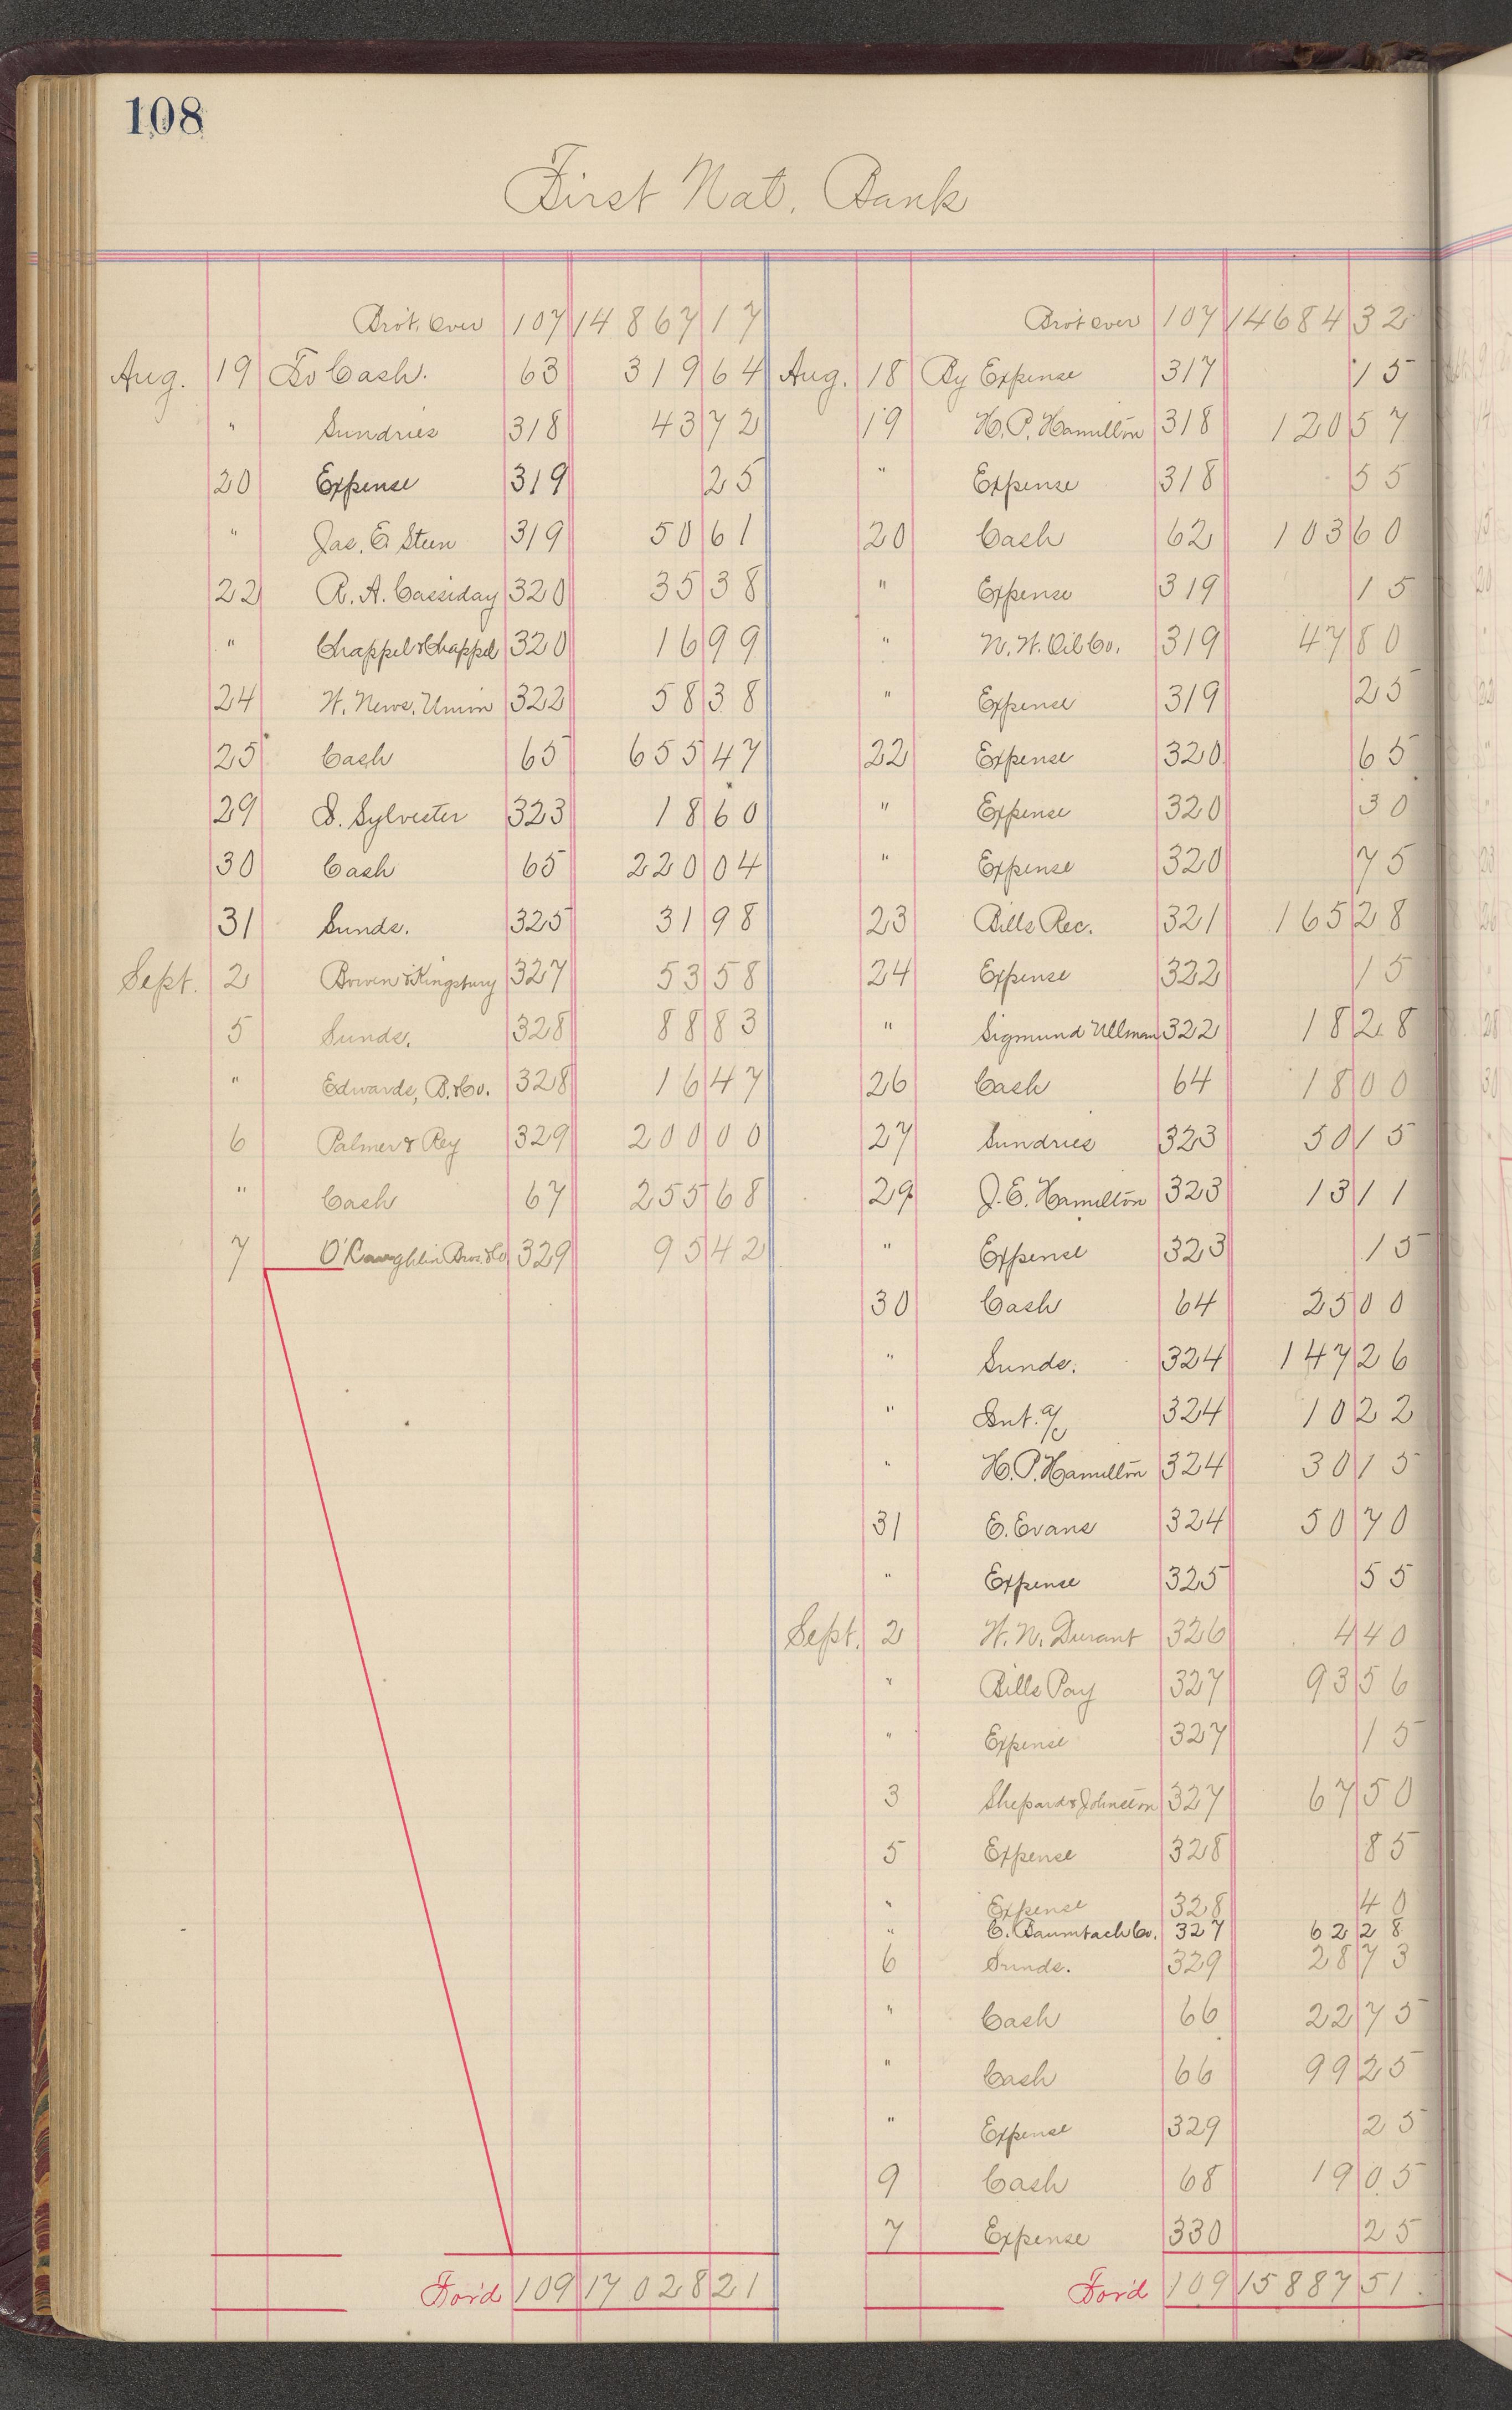 108
First Nat. Bank
Bro't. Over 107 14867 17
Aug. 19 To Cash. 63 319 64
" Sundries 318 43 72
20 Expense 319 25
" Jas. E. Steen 319 50 61
22 R. A. Cassiday 320 35 38
" Chappel & Chappel 320 16 99
24 W. News. Union 322 58 38
25 Cash 65 655 47
29 S. Sylvester 323 18 60
30 Cash 65 220 04
31 Sunds. 325 31 98
Sept. 2 Bowen & Kingsbury 327 53 58
5 Sunds. 328 88 83
" Edwards, B. & Co. 328 16 47
6 Palmer & Rey 329 200 00
" Cash 67 255 68
7 O'Laughlin Bros. & Co. 329 95 42
For'd 109 17028 21
Bro't over 107 14684 32
Aug. 18 By Expense 317 15
19 H. P. Hamilton 318 120 57
" Expense 318 55
20 Cash 62 103 60
" Expense 319 15
" N. W. Oil Co. 319 47 80
" Expense 319 25
22 Expense 320 65
" Expense 320 30
" Expense 320 75
23 Bills Rec. 321 165 28
24 Expense 322 15
" Sigmund Ullman 322 18 28
26 Cash 64 18 00
27 Sundries 323 50 15
29 J. E. Hamilton 323 13 11
" Expense 323 15
30 Cash 64 25 00
" Sunds. 324 147 26
" Int. a/c 324 10 22
" H. P. Hamilton 324 30 15
31 E. Evans 324 50 70
" Expense 325 55
Sept. 2 W. N. Durant 326 4 40
" Bills Pay 327 93 56
" Expense 327 15
3 Shepard & Johnston 327 67 50
5 Expense 328 85
" Expense 328 40
" C. Baumbach Co. 327 62 28
6 Sunds. 329 28 73
" Cash 66 22 75
" Cash 66 99 25
" Expense 329 25
9 Cash 68 19 05
7 Expense 330 25
For'd 109 15887 51